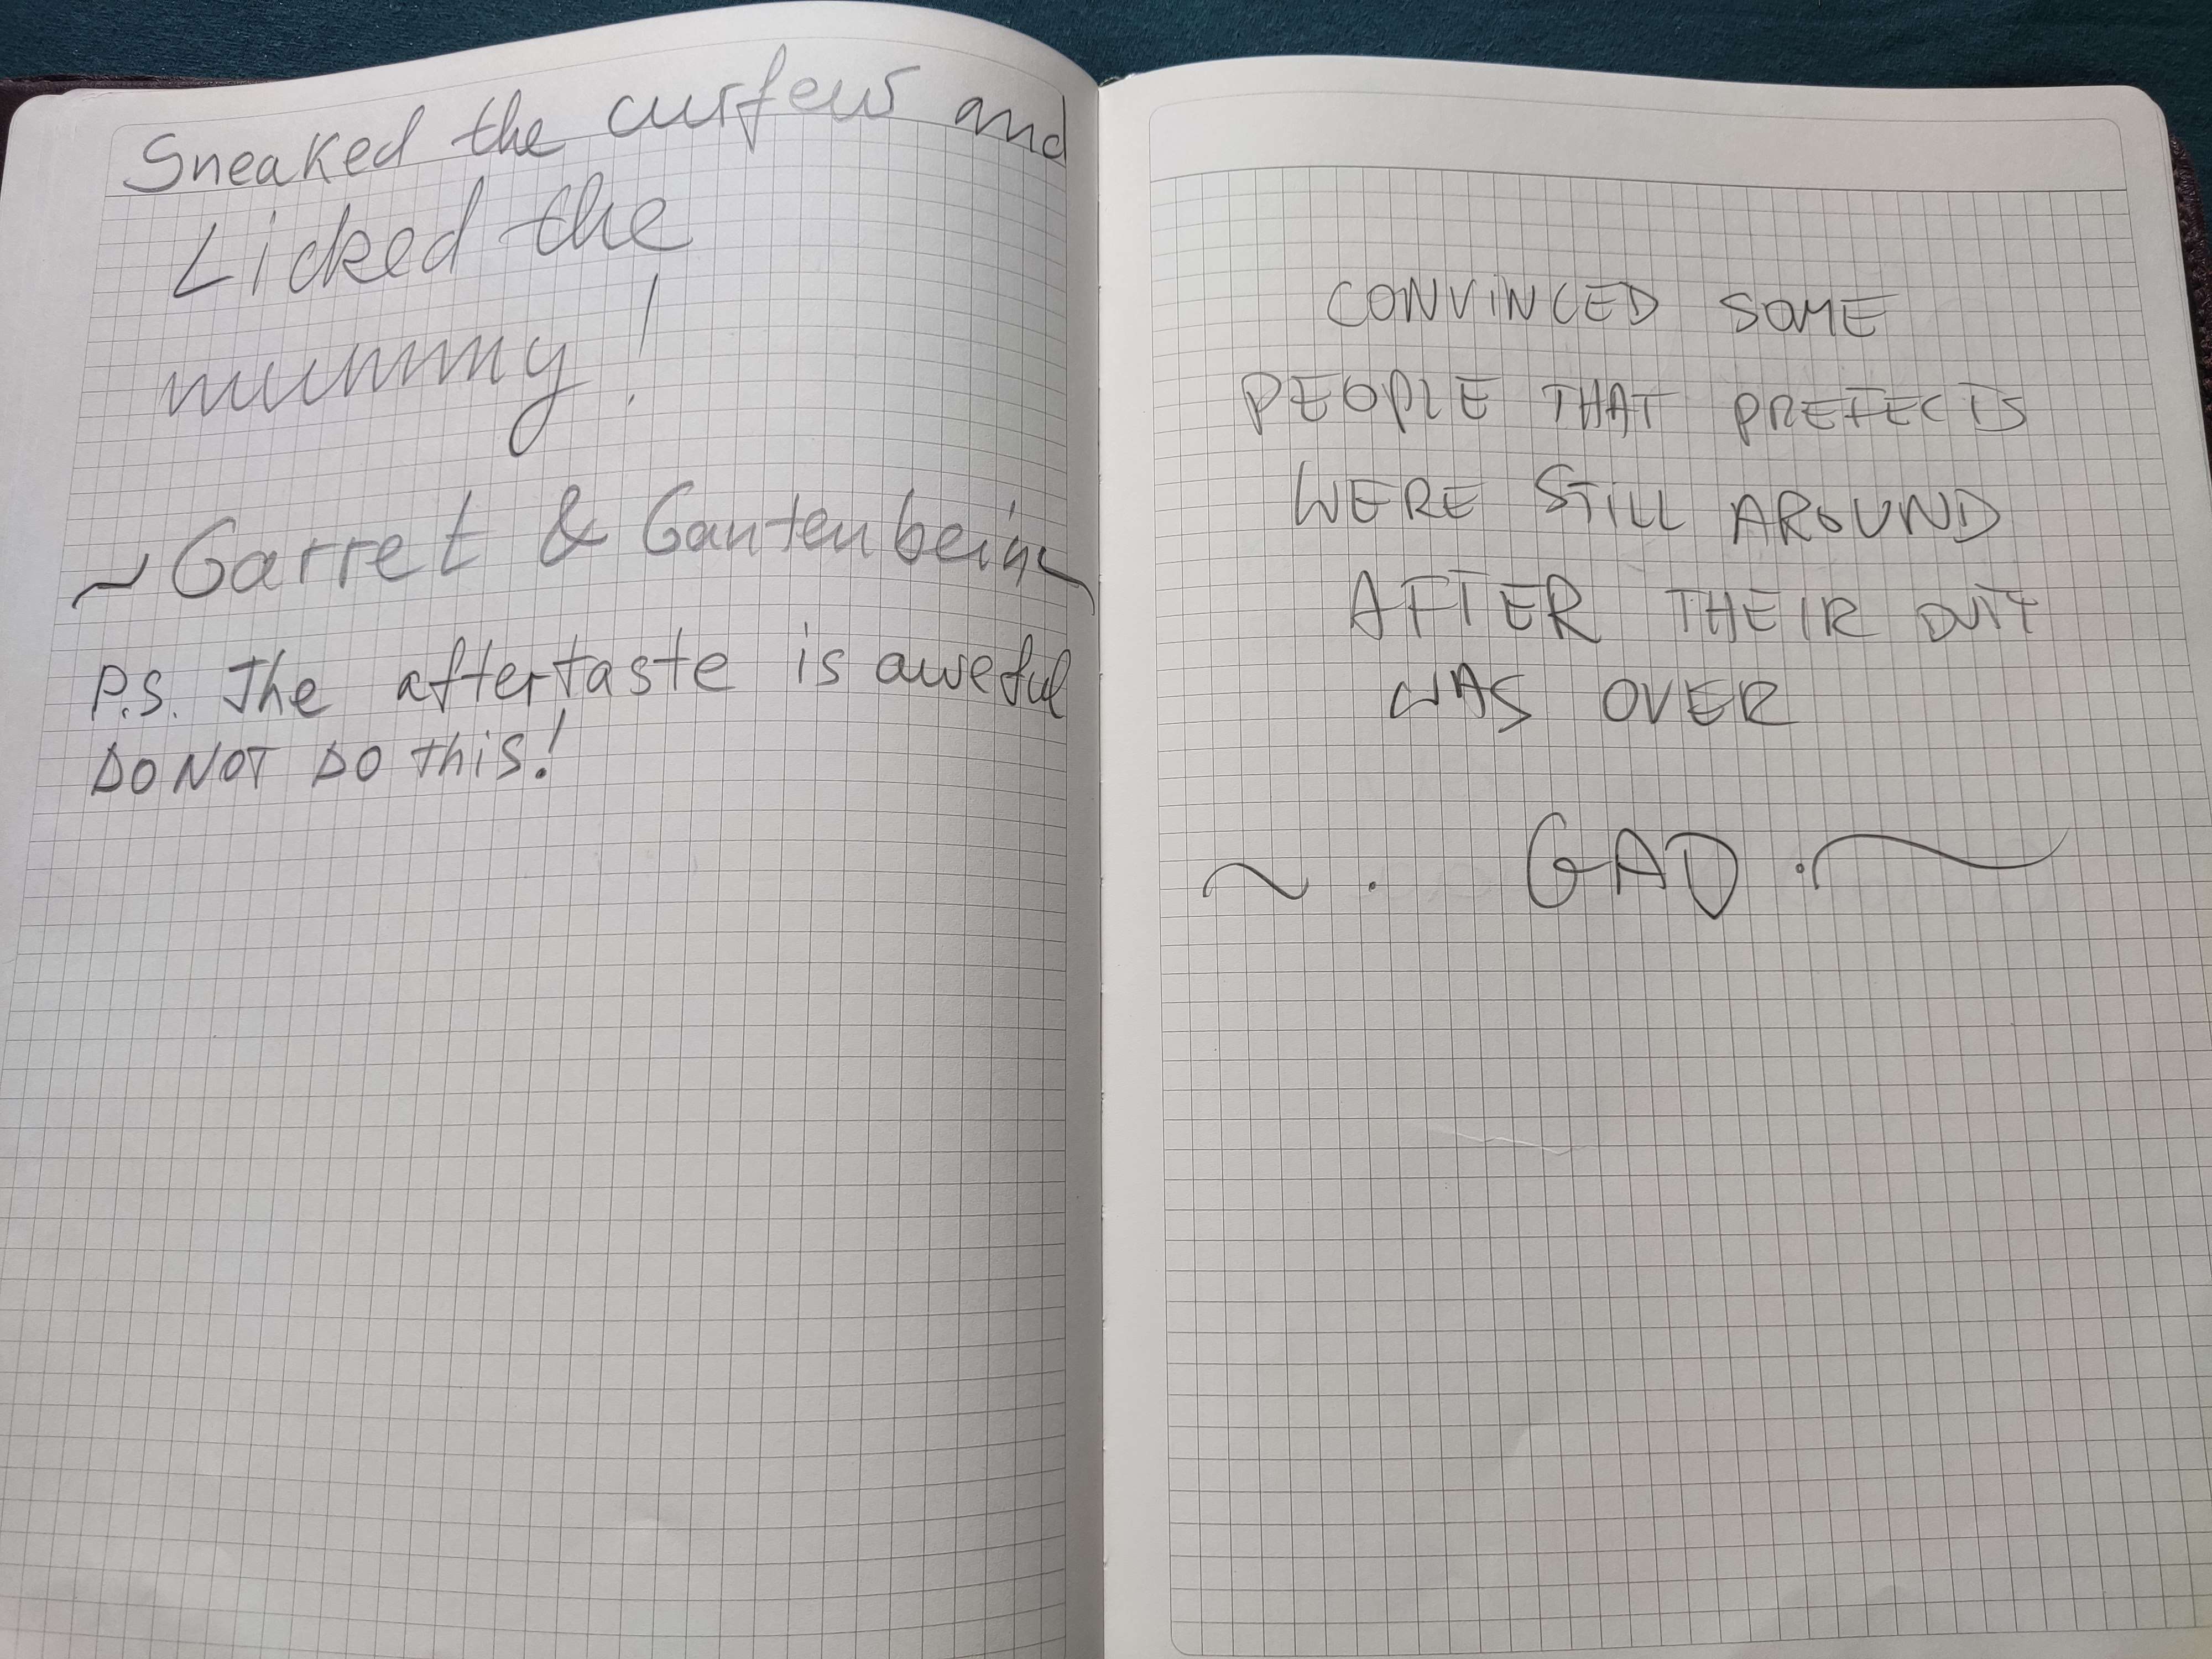 Sneaked the curfew and
Licked the
mummy!
~ Garret & Gantenbein ~
P.S. The aftertaste is aweful
DO NOT DO this!
CONVINCED SOME
PEOPLE THAT PREFECTS
WERE STILL AROUND
AFTER THEIR DUTY
WAS OVER
~ . GAD . ~